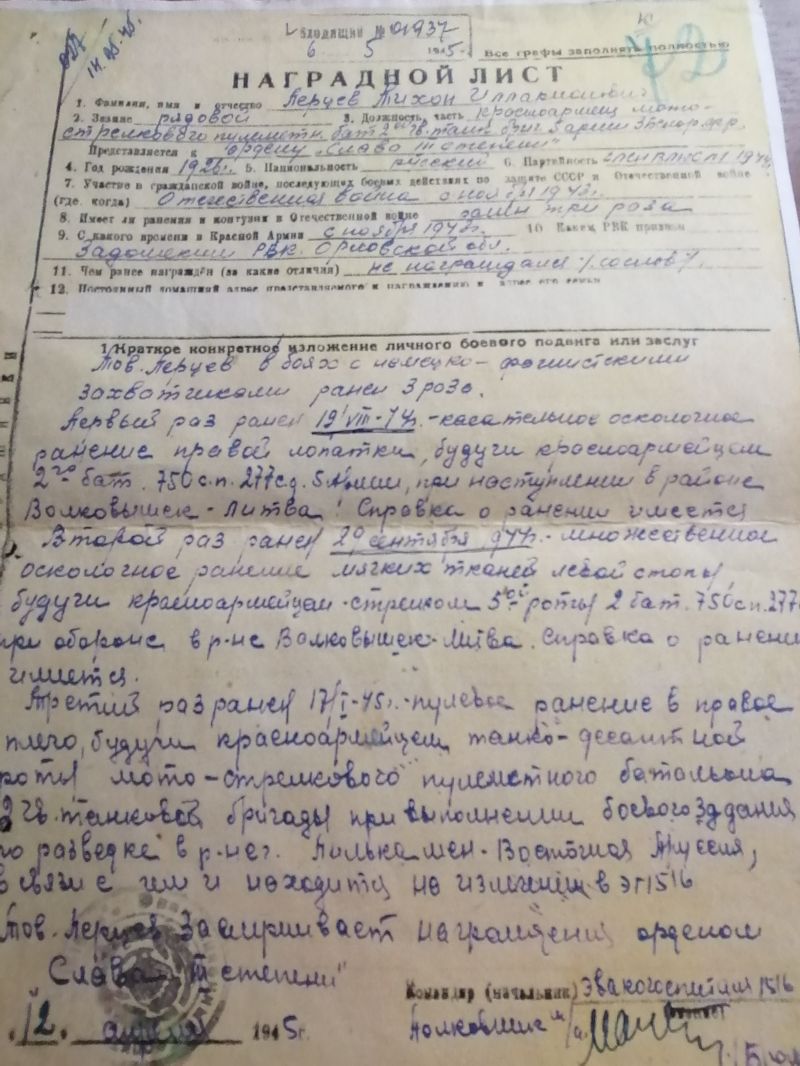 Входящий № 01937
6 5 1945 г.
Все графы заполнять полностью
НАГРАДНОЙ ЛИСТ
1. Фамилия, имя и отчество Перцев Тихон Илларионович
2. Звание рядовой 3. Должность, часть красноармеец мото-
стрелкового пулеметн. бат. 2ой гв. танк. бриг. 5 армии 3
Представляется к ордену „Слава III степени"
4. Год рождения 1926 г. 5. Национальность русский 6. Партийность член ВЛКСМ 1944
7. Участие в гражданской войне, последующих боевых действиях по защите СССР и Отечественной войне
(где, когда) Отечественная война с ноября 1943 г.
8. Имеет ли ранения и контузии в Отечественной войне ранен три раза
9. С какого времени в Красной Армии с ноября 1943 г. 10. Каким РВК призван
РВК. Орловской обл.
11. Чем ранее награждён (за какие отличия) не награждался /. со слов /.
12. Постоянный домашний адрес представляемого к награждению и адрес его семьи
1. Краткое конкретное изложение личного боевого подвига или заслуг
Тов. Перцев в боях с немецко-фашистскими
захватчиками ранен 3 раза.
Первый раз ранен 19/VIII-44г.-касательное осколочное
ранение правой лопатки, будучи красноармейцем
2го бат. 750 с.п. 277 сд. 5 Армии, при наступлении в районе
Волковышек-Литва! Справка о ранении имеется
Второй раз ранен 20 сентября 944г.-множественное
осколочное ранение мягких тканей левой стопы
будучи красноармейцем-стрелком 5ой роты 2 бат. 750 сп. 277
при обороне в р-не Волковышек-Литва. Справка о ранении
имеется.
Третий раз ранен 17/I-45г.-пулевое ранение в правое
плечо, будучи красноармейцем танко-десантной
роты мото-стрелкового пулеметного батальона
2 гв. танковой бригады при выполнении боевого здания
по разведке в р-не г. Пилькамен-Восточная Пруссия,
в связи с чем и находится на излечении в ЭГ 1516
Тов. Перцев заслуживает награждения орденом
„Слава III степени"
Командир (начальник) Эвакогоспиталя 1516
12 апреля 1945 г.
Полковник м/с